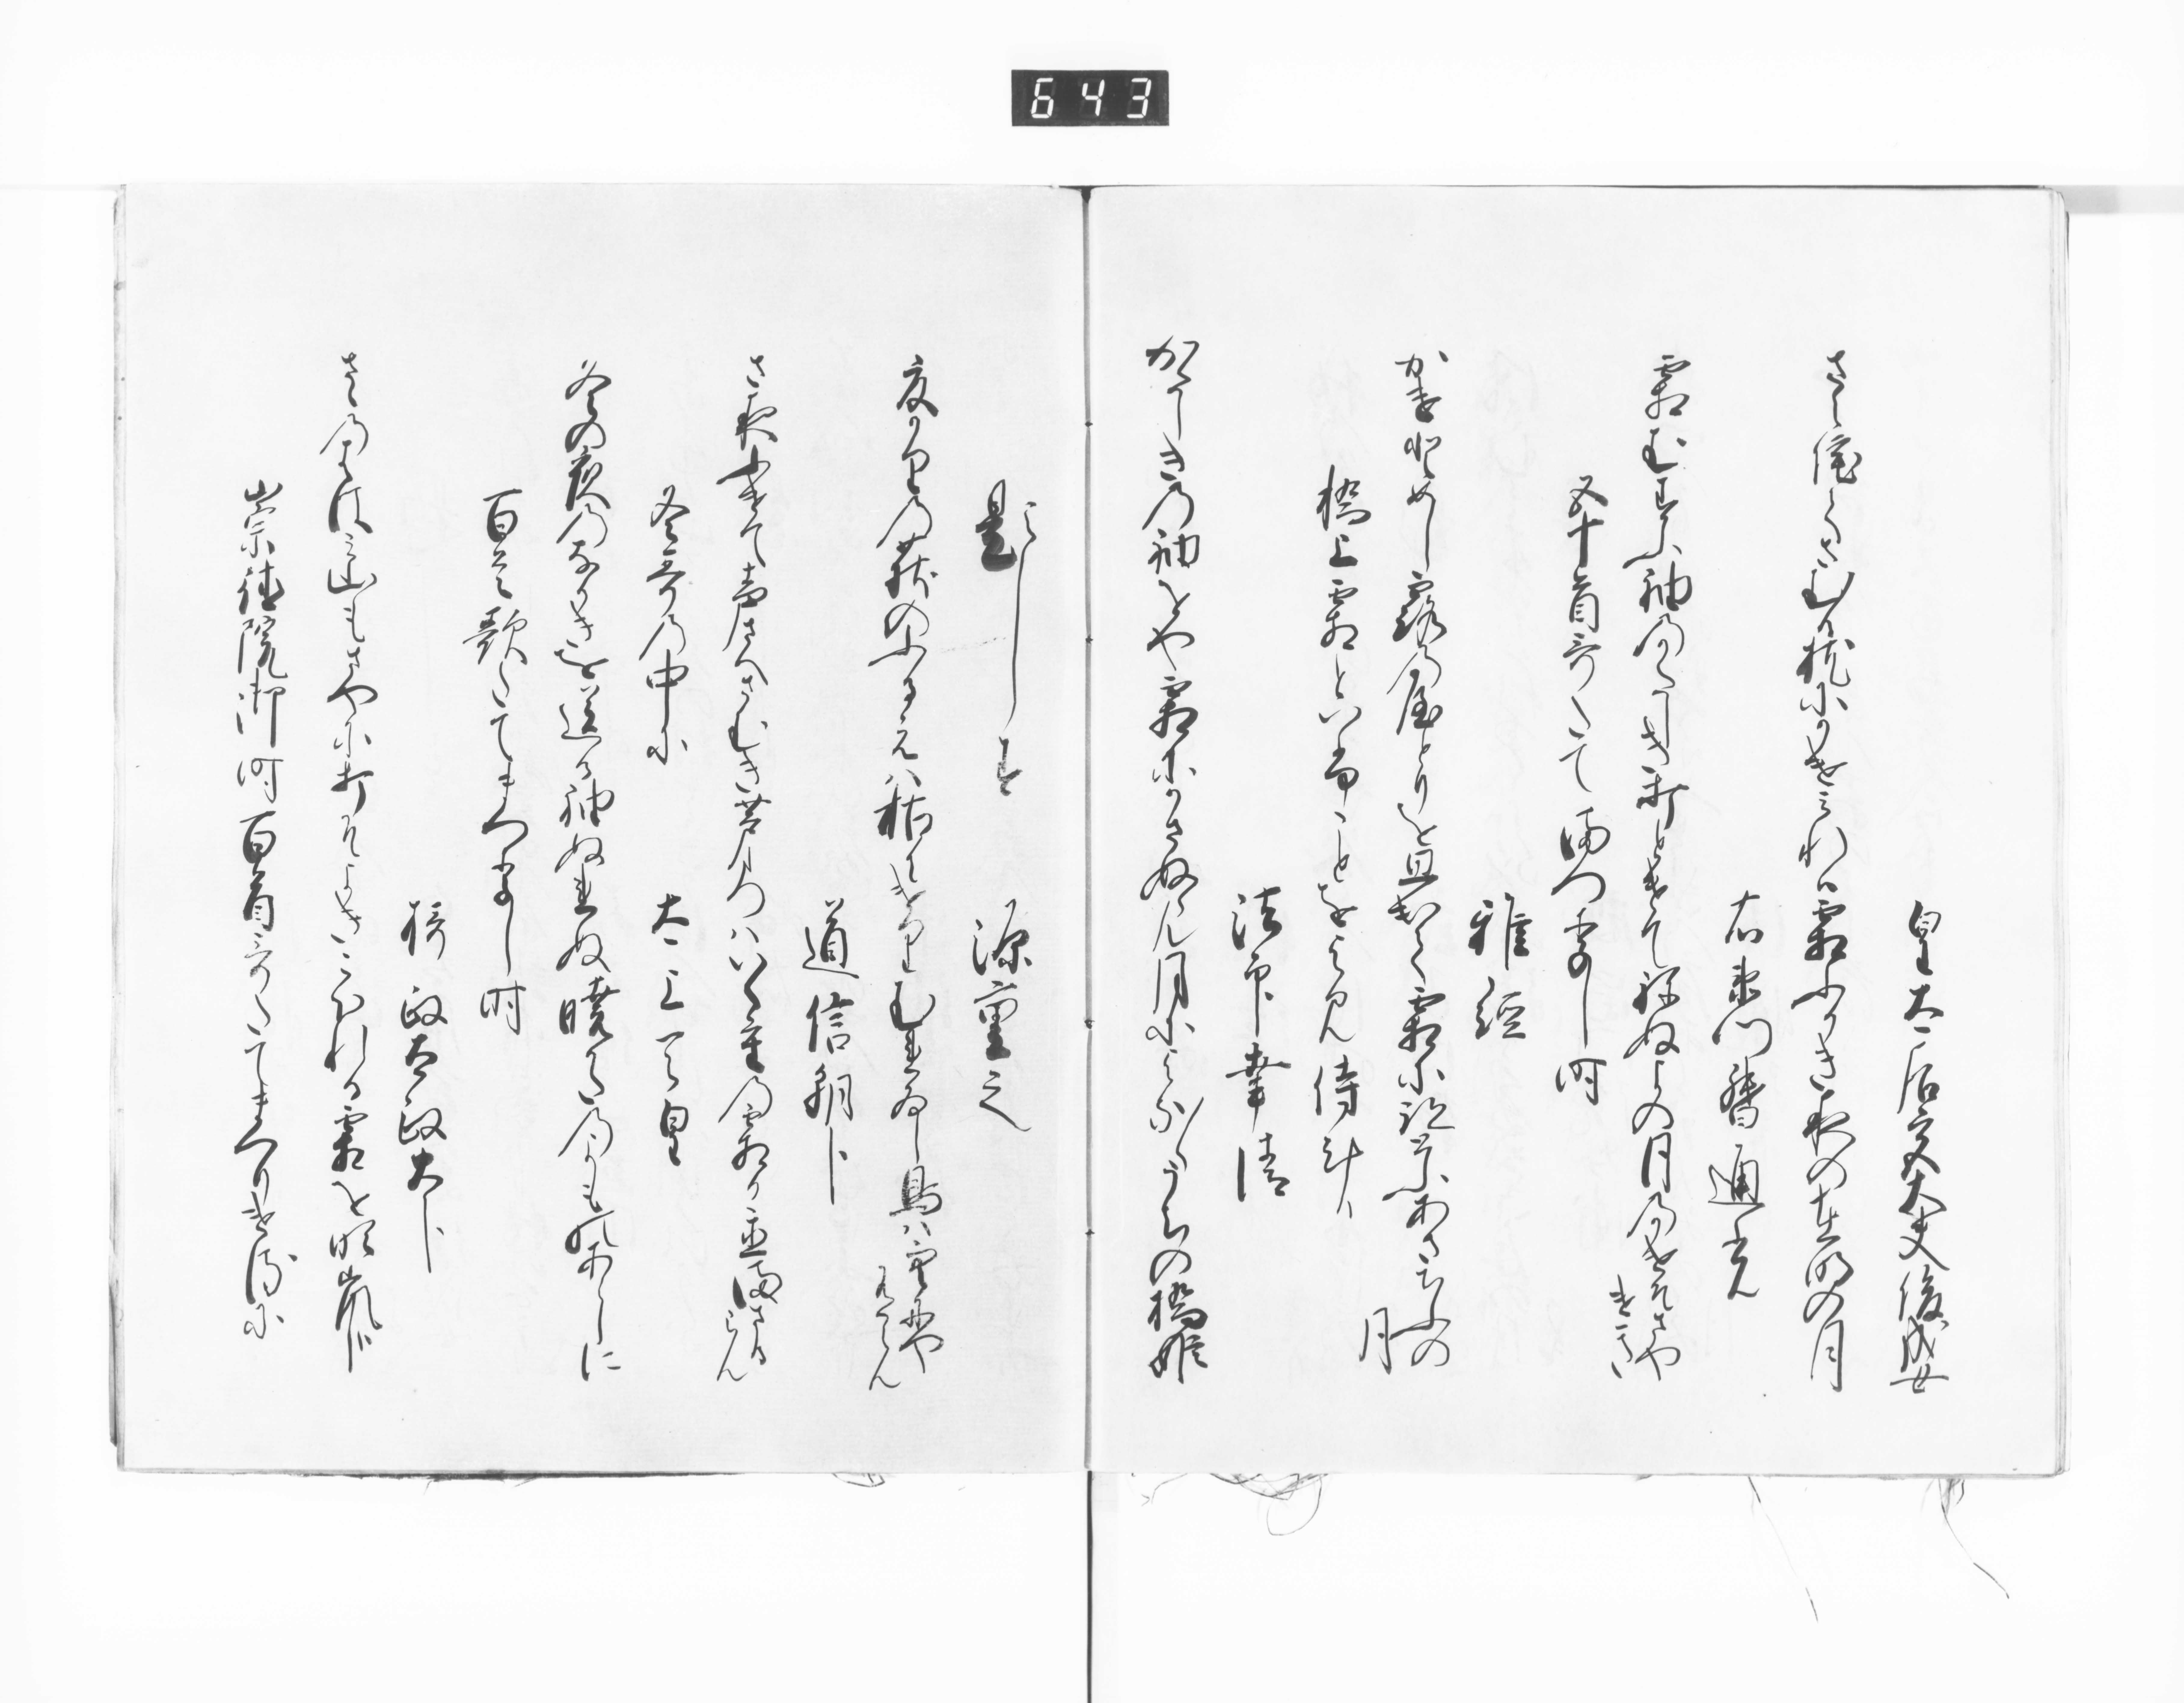 643
皇太后宮大夫俊成女
さえ侘てさむる枕にかけみれは霜ふかき夜の在明の月
右衛門督通光
霜むすふ袖のかたしき打とけてねぬよの月のかけそさや
けき
五十首哥たてまつりし時
雅経
かけとめし露の屋とりを思出て霜に跡とふあさちふの
月
橋上霜といふことをよみ侍ける
法印幸清
かたしきの袖をや霜にかさぬらん月によかるゝうちの橋姫
題しらす
源重之
夏かりの荻のふるえは枯にけりむれゐし鳥は空にや
あるらん
道信朝臣
さ夜ふけて声さへさむき芦たつはいく重の霜か置まさる
らん
冬哥の中に
太上天皇
冬の夜のなかきを送る袖ぬれぬ暁かたのよもの嵐に
百首歌たてまつりし時
摂政太政大臣
さゝのはゝみ山もさやに打そよきこほれる霜を吹嵐哉
崇徳院御時百首哥たてまつりけるに